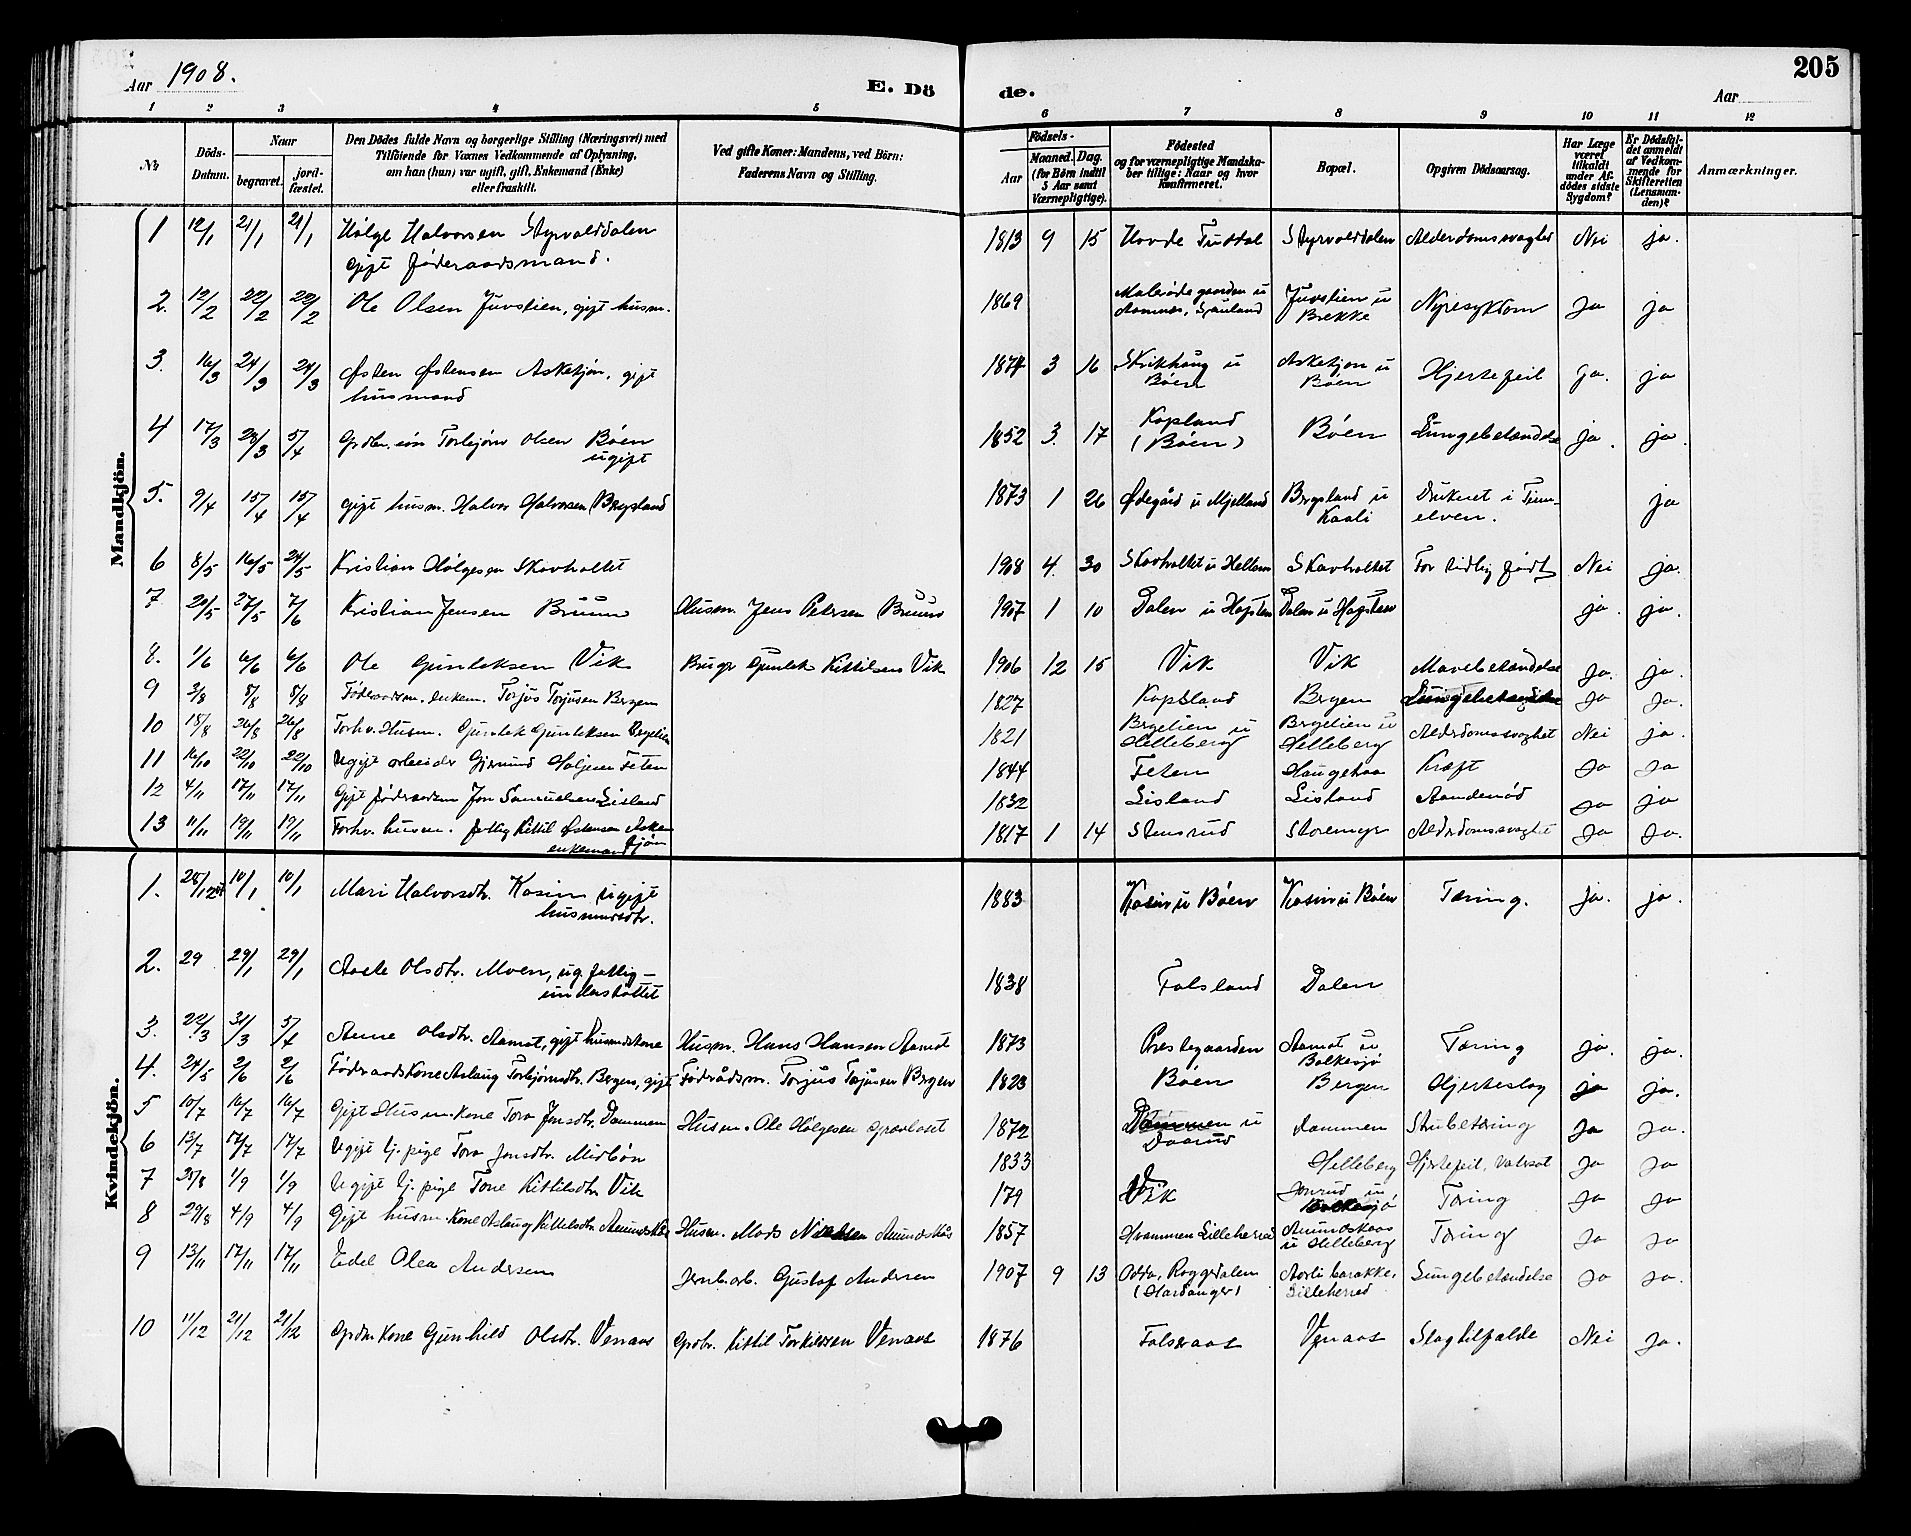 Aar 1908.
E. Dö
de.
Aar
205
1 2 3 4 5 6 7 8 9 10 11 12
No
Döds-Datum.
Naar
begravet.
jord-fæstet.
Den Dödes fulde Navn og borgerlige Stilling (Næringsvei) med
Tilföiende for Voxnes Vedkommende af Oplysning,
om han (hun) var ugift, gift, Enkemand (Enke)
eller fraskilt.
Ved gifte Koner: Mandens, ved Börn:
Faderens Navn og Stilling.
Födsels-
Aar
Maaned. Dag.
(for Börn indtil
5 Aar samt
Værnepligtige).
Födested
og for værnepligtige Mandska-
ber tillige: Naar og hvor
Konfirmeret.
Bopæl.
Opgiven Dödsaarsag.
Har Læge
været
tilkaldt
under Af-
dödes sidste
Sygdom?
Er Dödsfal-
det anmeldt
af Vedkom-
mende for
Skifteretten
(Lensman-
den)?
Anmærkninger.
Mandkjön.
1 12/1 21/1 21/1 Hölge Halvorsen Styrvolddalen 1813 9 15 Hovde Tuddal Styrvolddalen Alderdomssvaghed Nei ja.
gift föderaadsmand.
2. 12/2 22/2 22/2 Ole Olsen Juvslien, gift husm. 1869 Juvslien u Brekke Nyresykdom Ja ja
3. 16/3 24/3 24/3 Østen Østensen Asketjön, gift husmand 1874 3 16 Skrikhaug u Böen Asketjön u Böen Hjertefeil ja. ja
4 17/3 23/3 5/4 Grdbr. sön Torbjörn Olsen Böen ugift 1852 3. 17 Kopland (Böen) Böen Lungebetændelse ja. ja.
5. 9/4 15/4 15/4 gift husm. Halvor Halvorsen Bergsland 1873 1 26 Ødegård u Mjelland Bergsland u Kaali Druknet i Tinnelven. ja
6 8/5 16/5 24/5 Kristian Hölgesen Skavholtet 1908 4. 30 Skavholtet u Skavholtet For tidlig födt Nei ja.
7 20/5 27/5 7/6 Kristian Jensen Bruun Husm. Jens Petersen Bruun 1907 1 10 Dalen u Hafsten Dalen u Hafsten ja. ja.
8. 1/6 6/6 6/6 Ole Gunleksen Vik Brugr Gunlek Kittilsen Vik 1906 12 15 Vik Vik Mavebetændelse Ja. ja.
9 3/8 8/8 8/8 Föderaadsm. enkem. Torjus Torjusen Bergen 1827 Kopsland Bergen Lungebetændelse Ja Ja.
10 18/8 26/8 26/8 Forhv. Husm. Gunlek Gunleksen Bergelien 1821 Bergelien u Helleberg Bergelien u Helleberg Alderdomssvaghet Nei ja.
11 16/10 22/10 22/10 Ugift arbeider Gjermund Holjesen Feten 1844 Feten Haugekaas Kræft Ja Ja
12 4/11 17/11 17/11 Gift föderaadsm Jon Samuelsen Lisland 1832 Lisland Lisland Aandenöd Ja ja
13 11/11 19/11 19/11 Forhv. husm. fattig Kittil Østensen Asketjön enkemand 1817 1 14 Stensrud Storemyr Alderdomssvaghet Ja Ja.
Kvindekjön.
1. 28/12 10/1 10/1 Mari Halvorsdtr. Kosin ugift husmdsdtr. 1883 Kosin u Böen Kosin u Böen Tæring. ja. ja.
2. 29 29/1 29/1 Aaste Olsdtr. Moen, ug. fattig-understöttet 1838 Folsland Dalen
3. 22/3 31/3 5/4 Anne Olsdtr. Aamot, gift husmdskone Husm. Hans Hansen Aamot 1873 Prestegaarden Aamot u Bolkesjö Tæring ja. ja.
4. 24/5 2/6 2/6 Föderaadskone Aslaug Torbjörnsdtr. Bergen, gift Föderådsm. Torjus Torjusen Bergen 1823 Böen Bergen Hjerteslag ja ja.
5 10/7 16/7 16/7 Gift Husm. kone Tora Jonsdtr. Dammen Husm. Ole Hölgesen 1872 Dammen u Daarud Dammen Strubetæring Ja Ja.
6 13/7 17/7 17/7 Ugift tj. pige Tora Jonsdtr. Midbön 1833 Helleberg Hjertefeil, Vatersot Ja Ja
7 30/8 1/9 1/9 Ugift tj. pige Tone Kittilsdtr Vik 179 Vik Jonrud u Bolkesjö Tæring Ja Ja
8 29/8 4/9 4/9 Gift husm. kone Aslaug Kittelsdtr Amundskås Husm. Mads Nielsen Amundskås 1857 Hvammen Lilleherred Amundskaas u Helleberg Tæring Ja Ja
9 13/11 17/11 17/11 Edel Olea Andersen Jernb.arb. Gustaf Andersen 1907 9 13 Odda, Roggedalem (Hardanger) Aarli barakke, Lilleherred Lungebetændelse Ja Ja.
10 11/12 21/12 21/12 Grdm kone Gunhild Olsdtr. Venaas Grdbr. Kittil Torkilsen Venaas 1876 Folseraas Venaas Slagtilfælde Nei Ja.